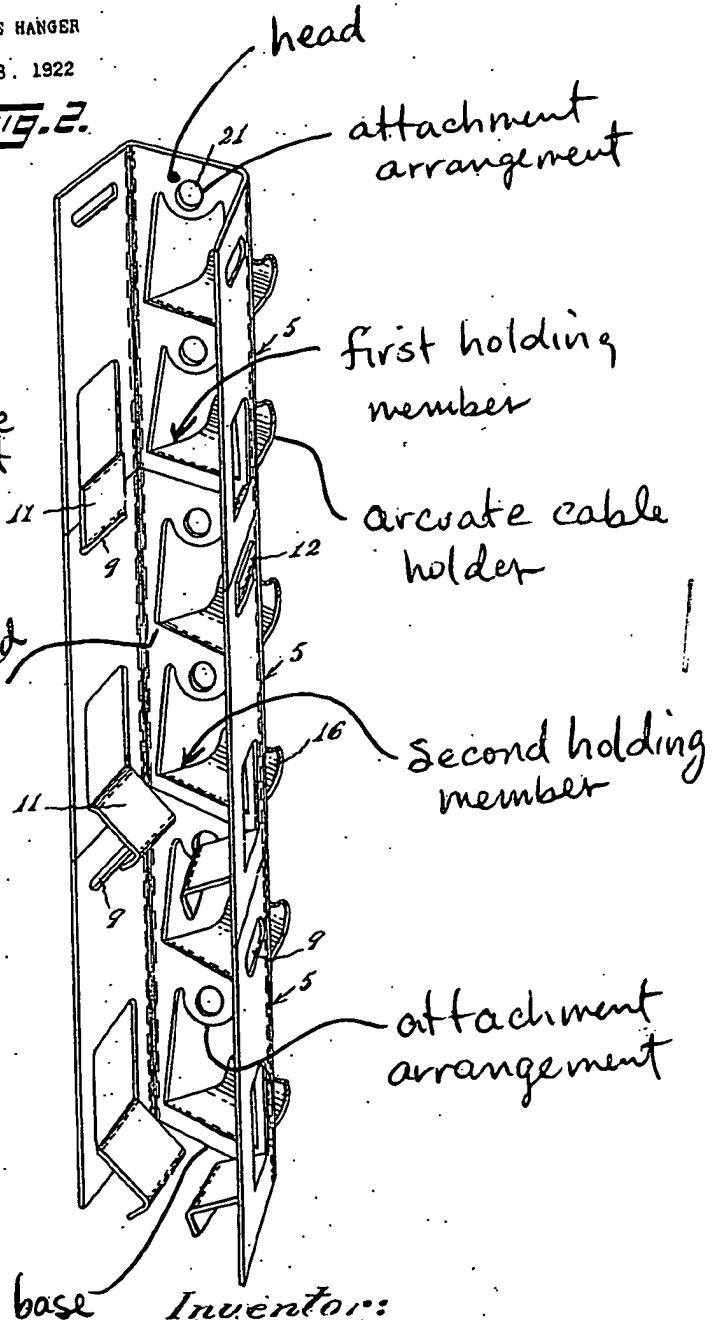 HANGER
1922
Fig. 2.
head
21
attachment
arrangement
5
first holding
member
11
9
arcuate cable
holder
12
5
16
second holding
member
11
9
9
5
attachment
arrangement
base
Inventor: